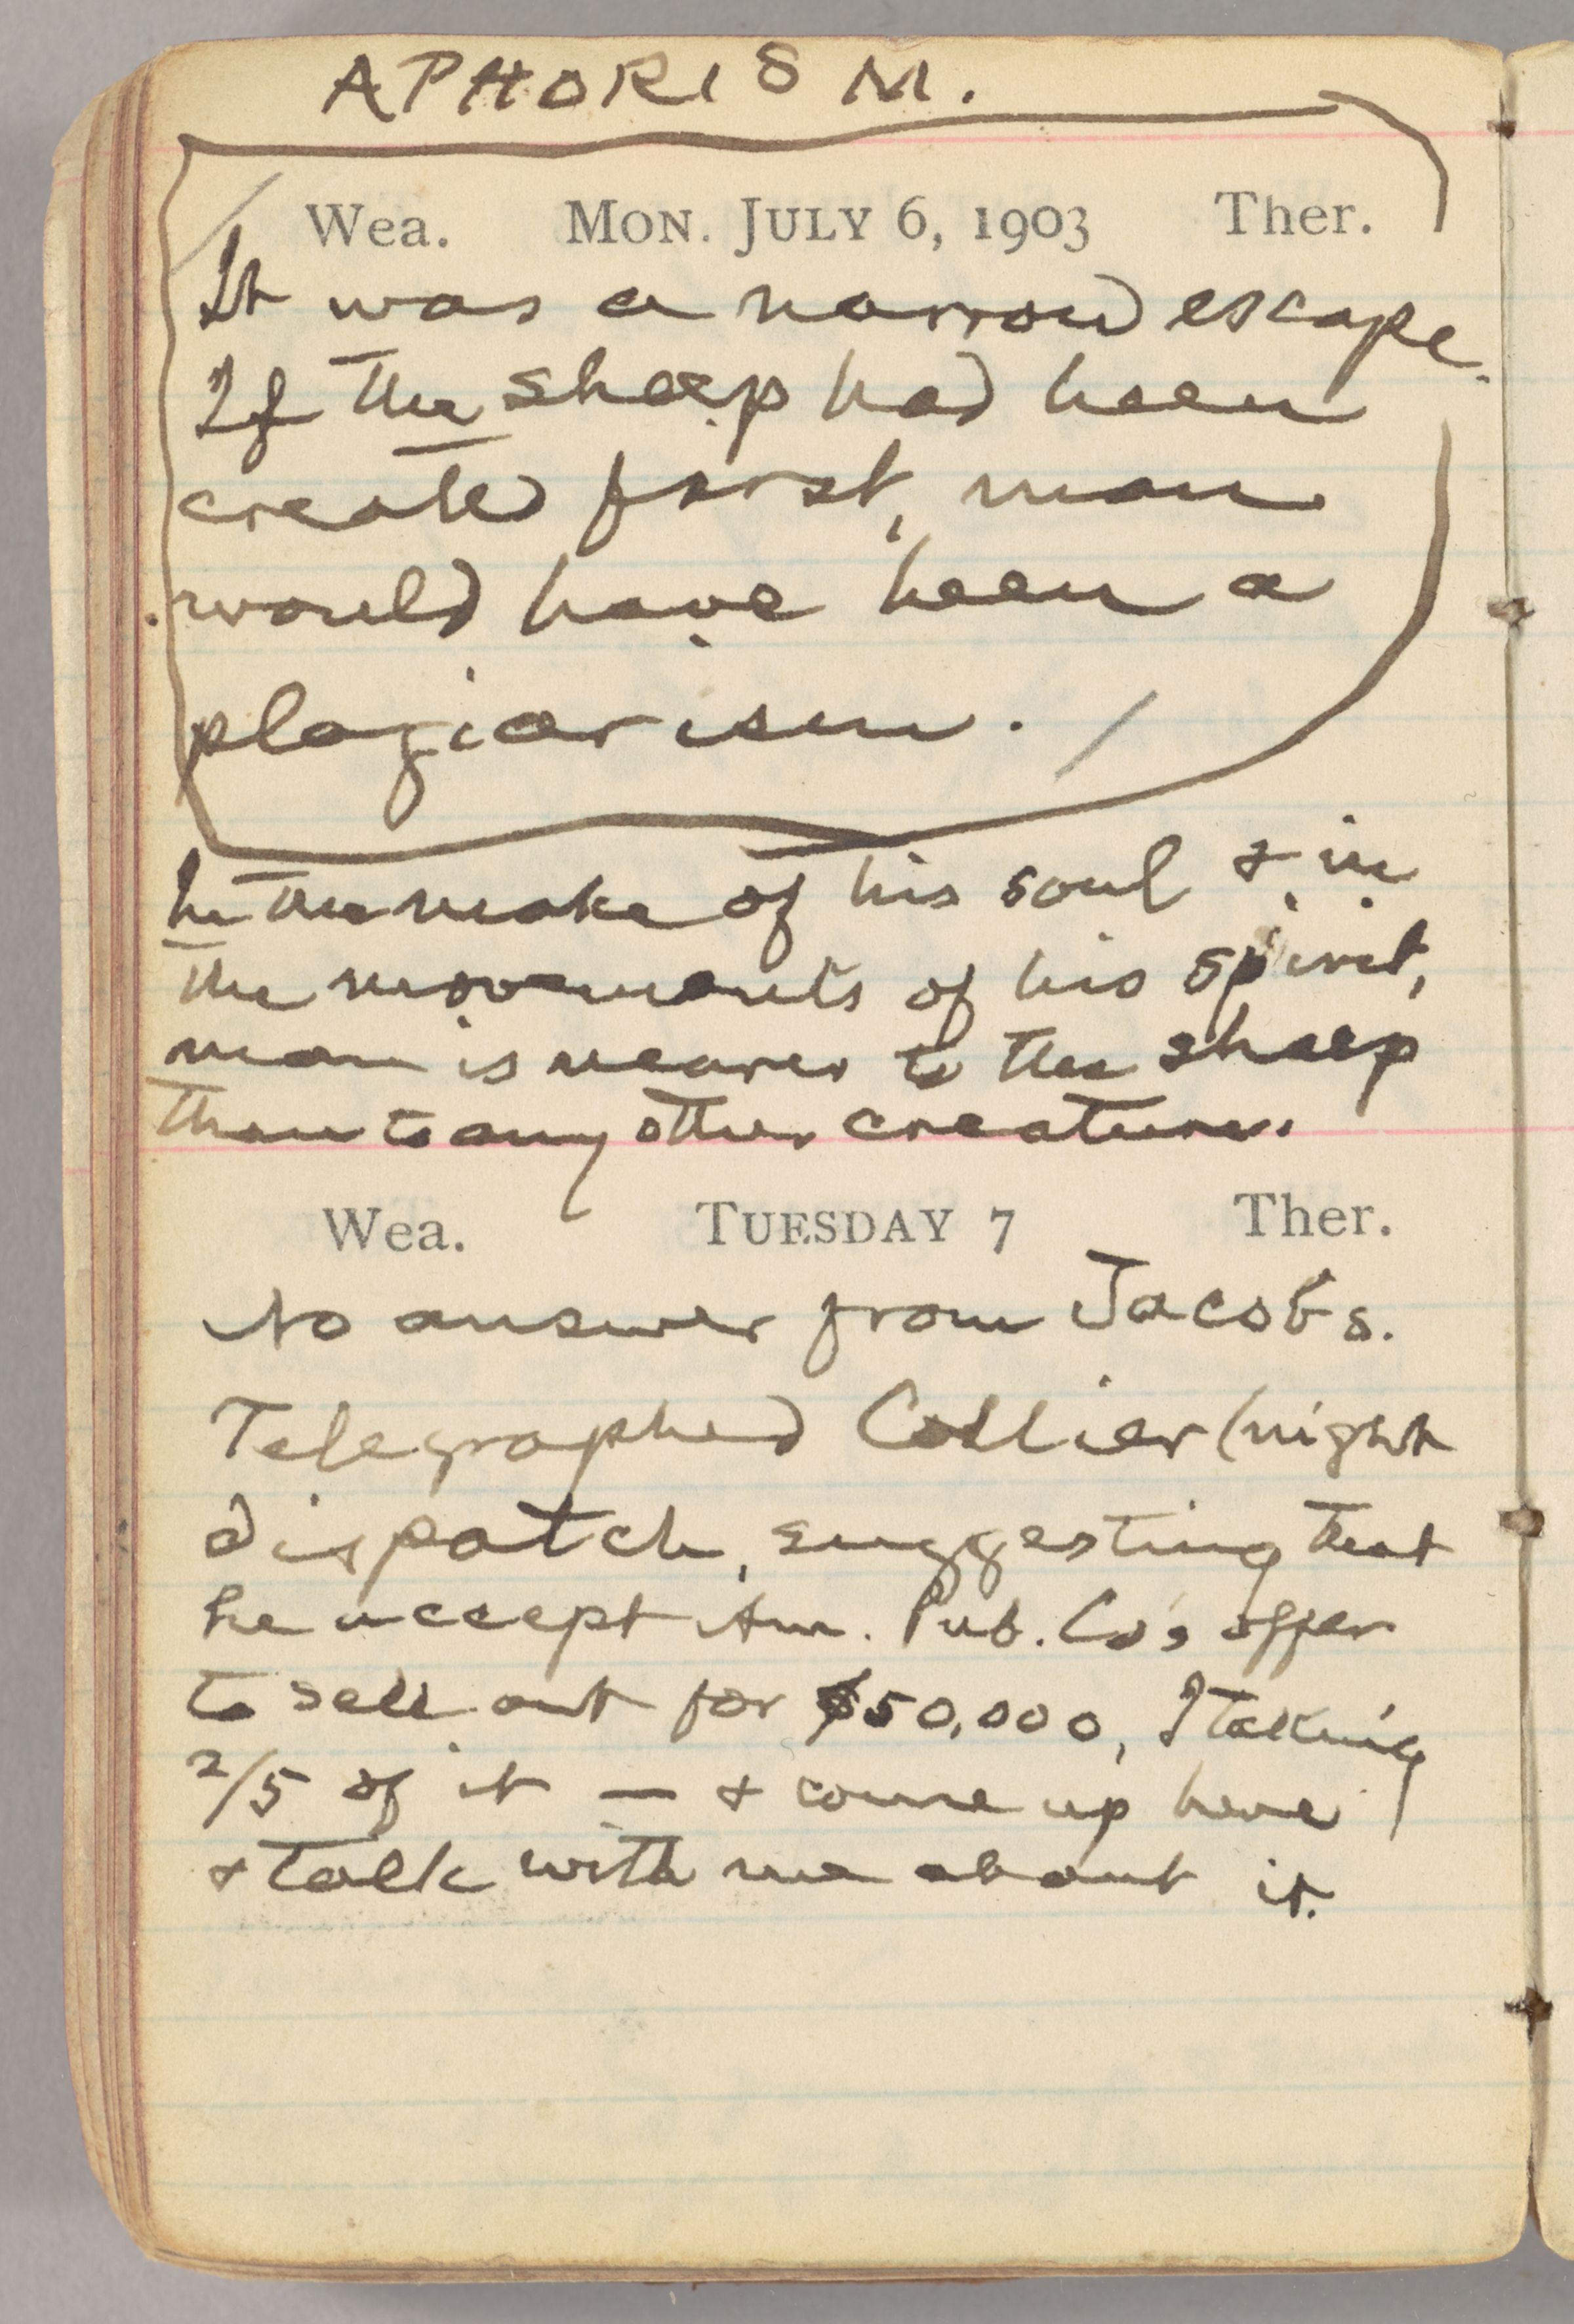 APHORISM.
Wea. MON. JULY 6, 1903 Ther.
It was a narrow escape.
If the sheep had been
created first, man
would have been a
plagiarism.
In the make of his soul & in
the movements of his spirit,
man is nearer to the sheep
than to any other creature.
Wea. TUESDAY 7 Ther.
No answer from Jacobs.
Telegraphed Collier (night
dispatch, suggesting that
he accept Am. Pub. Co's offer
to sell out for $50,000, I taking
2/5 of it — & come up here
& talk with me about it.